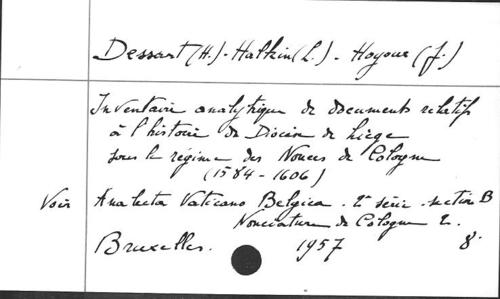 Dessart (H.) - Halkin (L.) - Hoyoux (J.)
Inventaire analytique de documents relatifs
à l'histoire du Diocèse de Liège
sous le régime des Nonces de Cologne
(1584-1606)
Voir Analecta Vaticano Belgica. 2e série. section B
Nonciature de Cologne 2.
Bruxelles. 1957 8°.